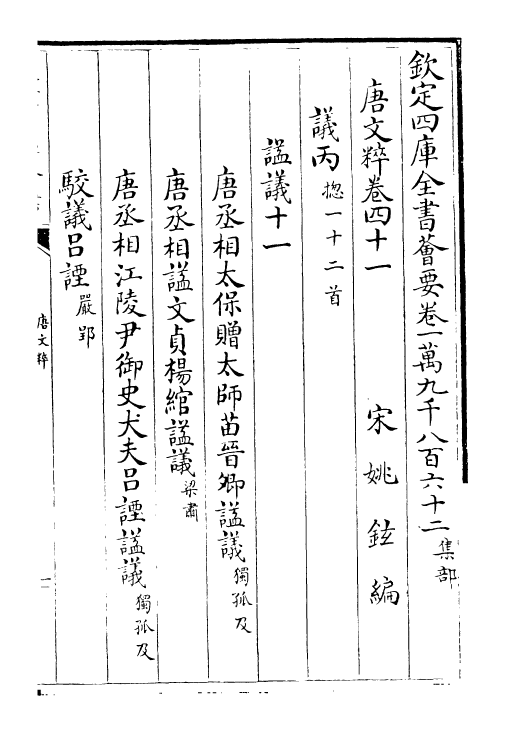 欽定四庫全書薈要卷一萬九千八百六十二 集部
唐文粹卷四十一 宋 姚鉉 編
議丙 揔一十二首
諡議十一
唐丞相太保贈太師苗晉卿諡議 獨孤及
唐丞相諡文貞楊綰諡議 梁肅
唐丞相江陵尹御史大夫呂諲諡議 獨孤及
駮議呂諲 嚴郢
唐文粹